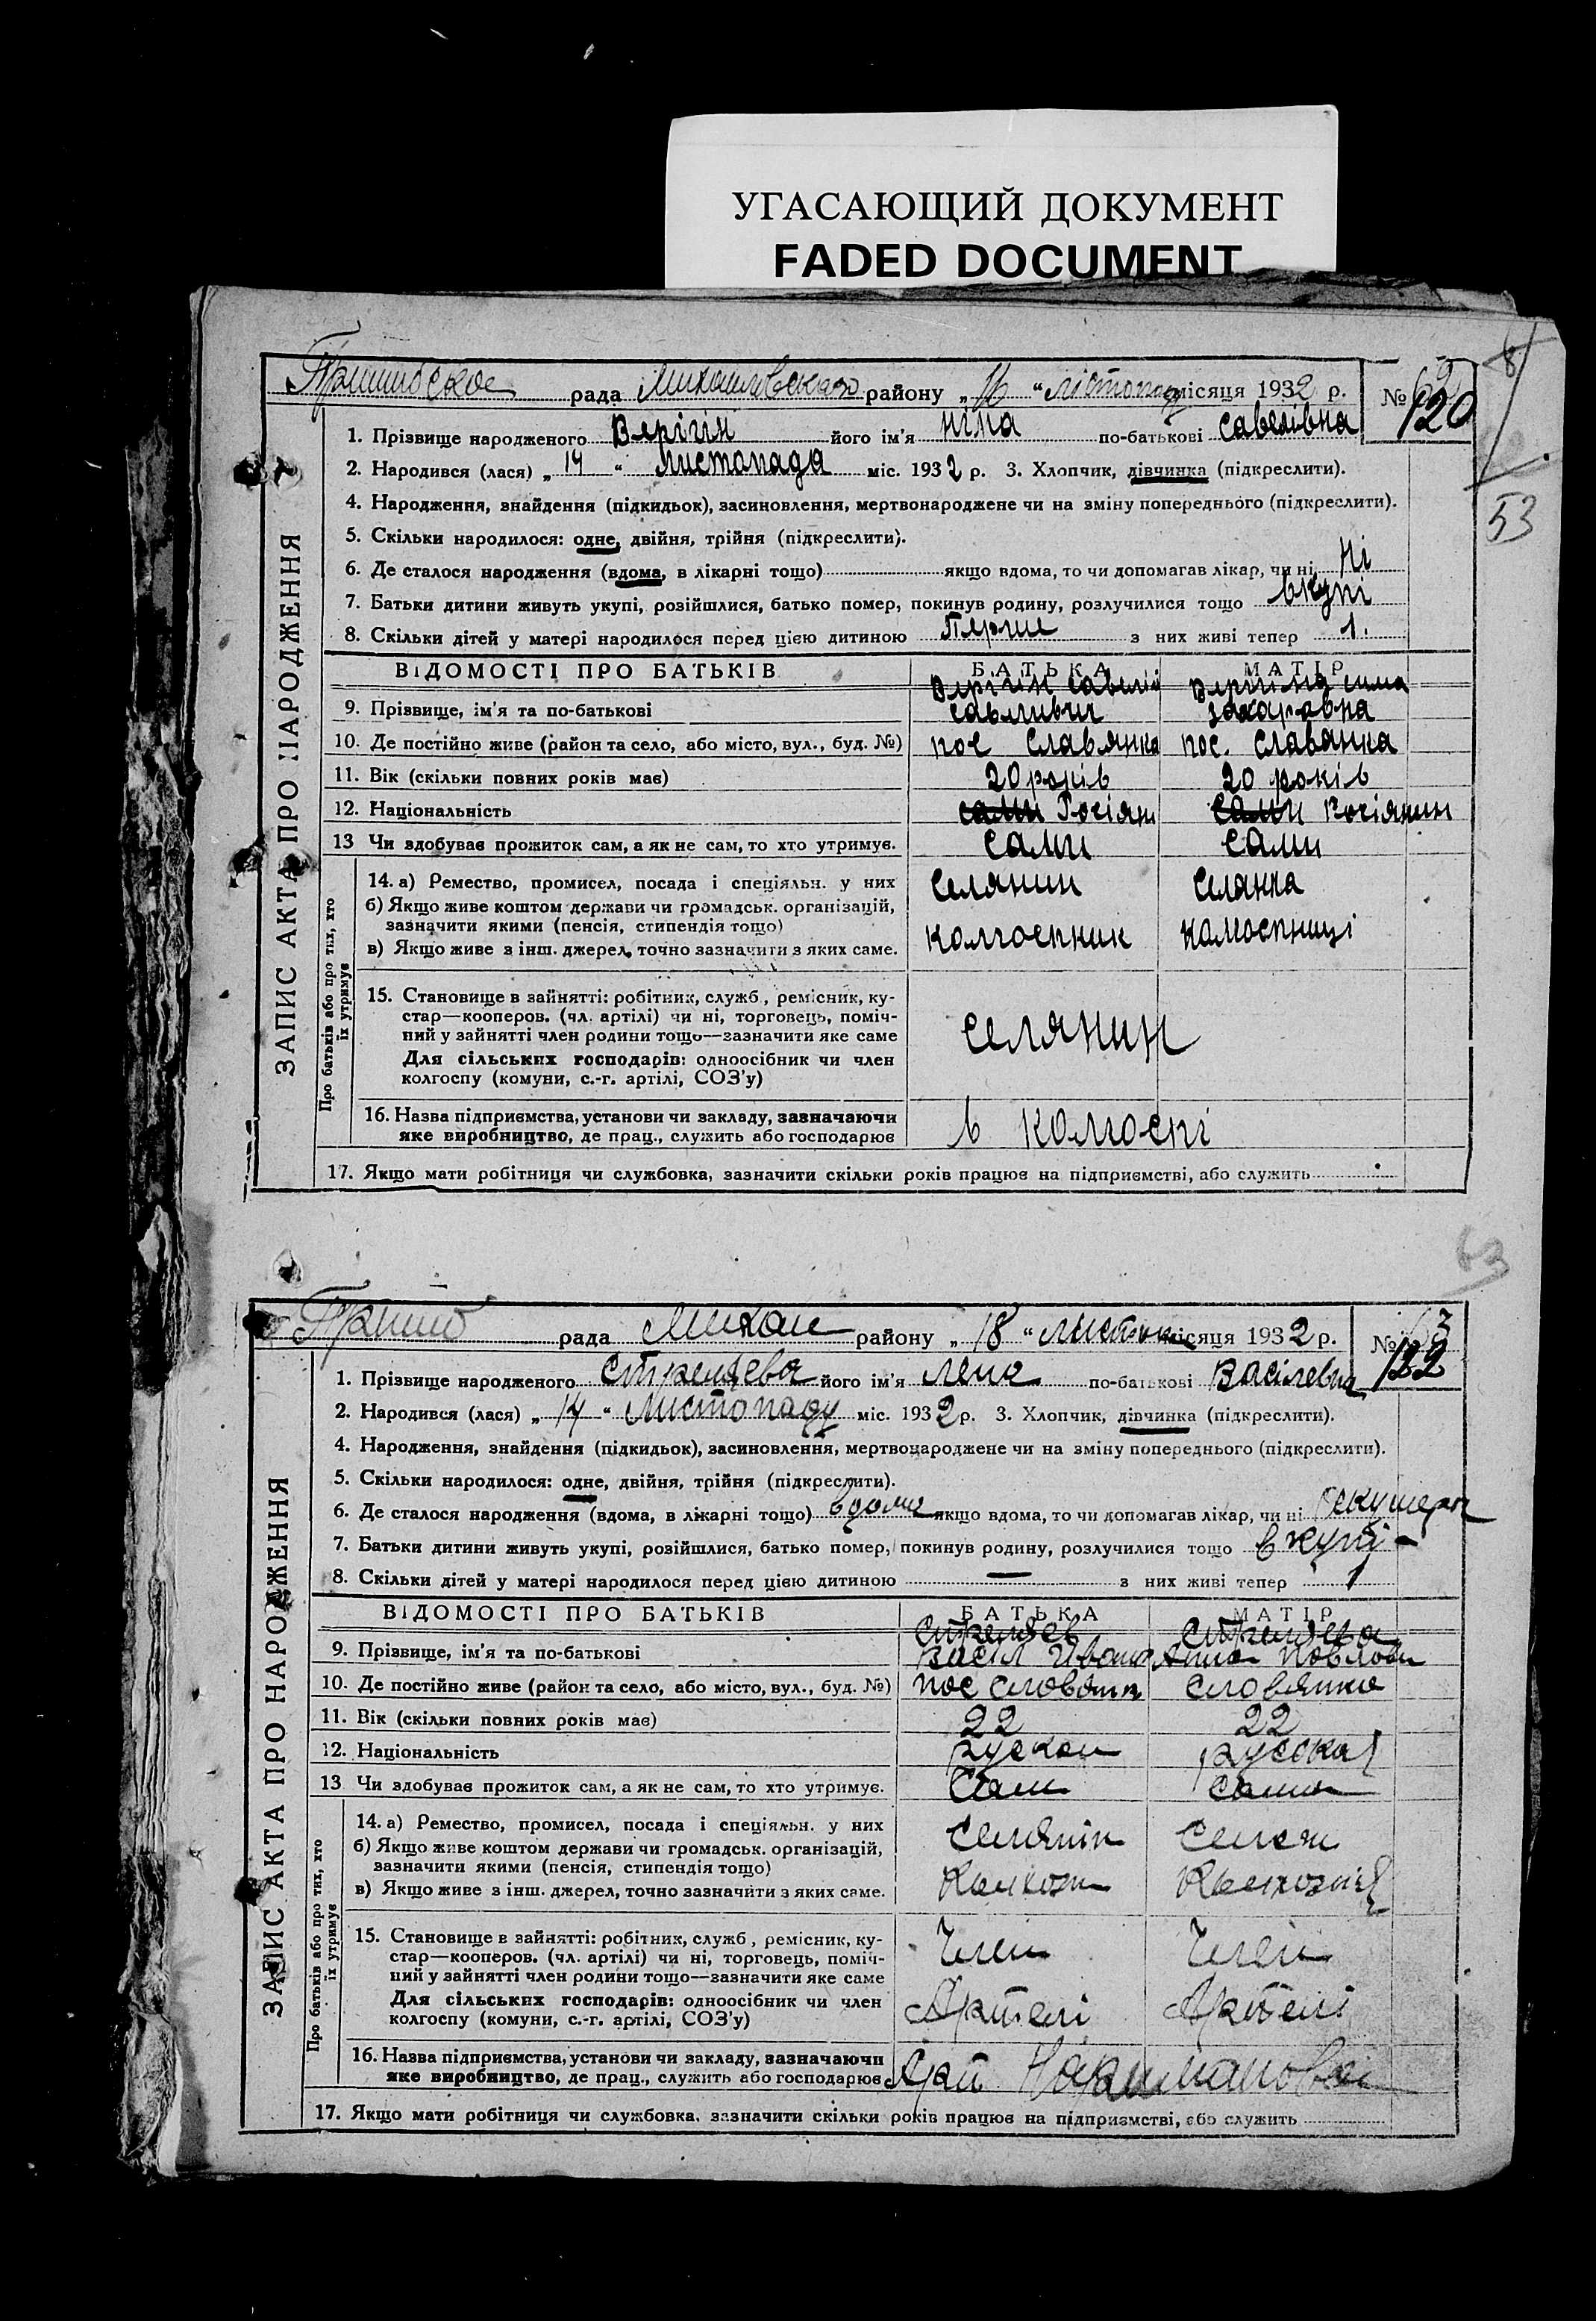 УГАСАЮЩИЙ ДОКУМЕНТ
FADED DOCUMENT
8
53
Пришибское рада Михайлівського району „16“ лістопад місяця 1932 р. № 62 120
ЗАПИС АКТА ПРО НАРОДЖЕННЯ
1. Прізвище народженого Верігін його ім'я Ніна по-батькові Савелівна
2. Народився (лася) „14“ Листопада міс. 1932 р. 3. Хлопчик, дівчинка (підкреслити).
4. Народження, знайдення (підкидьок), засиновлення, мертвонароджене чи на зміну попереднього (підкреслити).
5. Скільки народилося: одне, двійня, трійня (підкреслити).
6. Де сталося народження (вдома, в лікарні тощо) якщо вдома, то чи допомагав лікар, чи ні Ні
7. Батьки дитини живуть укупі, розійшлися, батько помер, покинув родину, розлучилися тощо вкупі
8. Скільки дітей у матері народилося перед цією дитиною Перше з них живі тепер 1.
ВІДОМОСТІ ПРО БАТЬКІВ БАТЬКА МАТІР
Верігін Савелій Верігіна
9. Прізвище, ім'я та по-батькові Савеливич Захаравна
10. Де постійно живе (район та село, або місто, вул., буд. №) пос Славянка пос. Славянка
11. Вік (скільки повних років має) 20 років 20 років
12. Національність сами Росіян сами Росіянин
13 Чи здобуває прожиток сам, а як не сам, то хто утримує. Сами Сами
Про батьків або про тих, хто їх утримує
14. а) Ремество, промисел, посада і спеціяльн. у них Селянин Селянка
б) Якщо живе коштом держави чи громадськ. організацій,
зазначити якими (пенсія, стипендія тощо)
в) Якщо живе з інш. джерел, точно зазначити з яких саме. колгоспник колгоспниці
15. Становище в зайнятті: робітник, служб, ремісник, ку-
стар—кооперов. (чл. артілі) чи ні, торговець, поміч-
ний у зайнятті член родини тощо—зазначити яке саме Селянин
Для сільських господарів: одноосібник чи член
колгоспу (комуни, с.-г. артілі, СОЗ'у)
16. Назва підприємства, установи чи закладу, зазначаючи
яке виробництво, де прац., служить або господарює в колгоспі
17. Якщо мати робітниця чи службовка, зазначити скільки років працює на підприємстві, або служить
63
Пришиб рада Михай району „18“ Листопа місяця 1932 р. № 63 122
ЗАПИС АКТА ПРО НАРОДЖЕННЯ
1. Прізвище народженого Стреляева його ім'я Лена по-батькові Василевна
2. Народився (лася) „14“ Листопаду міс. 1932 р. 3. Хлопчик, дівчинка (підкреслити).
4. Народження, знайдення (підкидьок), засиновлення, мертвонароджене чи на зміну попереднього (підкреслити).
5. Скільки народилося: одне, двійня, трійня (підкреслити).
6. Де сталося народження (вдома, в лікарні тощо) вдома якщо вдома, то чи допомагав лікар, чи ні
7. Батьки дитини живуть укупі, розійшлися, батько помер, покинув родину, розлучилися тощо вкупі
8. Скільки дітей у матері народилося перед цією дитиною — з них живі тепер 1
ВІДОМОСТІ ПРО БАТЬКІВ БАТЬКА МАТІР
Стреляев Стреляева
9. Прізвище, ім'я та по-батькові Васіл Иванов Анна Павлови
10. Де постійно живе (район та село, або місто, вул., буд. №) пос Словянка Словянка
11. Вік (скільки повних років має) 22 22
12. Національність русская
13 Чи здобуває прожиток сам, а як не сам, то хто утримує. Сами Сами
Про батьків або про тих, хто їх утримує
14. а) Ремество, промисел, посада і спеціяльн. у них Селянін
б) Якщо живе коштом держави чи громадськ. організацій,
зазначити якими (пенсія, стипендія тощо)
в) Якщо живе з інш. джерел, точно зазначити з яких саме.
15. Становище в зайнятті: робітник, служб, ремісник, ку-
стар—кооперов. (чл. артілі) чи ні, торговець, поміч- Член Член
ний у зайнятті член родини тощо—зазначити яке саме
Для сільських господарів: одноосібник чи член
колгоспу (комуни, с.-г. артілі, СОЗ'у) Артелі Артелі
16. Назва підприємства, установи чи закладу, зазначаючи
яке виробництво, де прац., служить або господарює Арт Наримановаі
17. Якщо мати робітниця чи службовка, зазначити скільки років працює на підприємстві, або служить